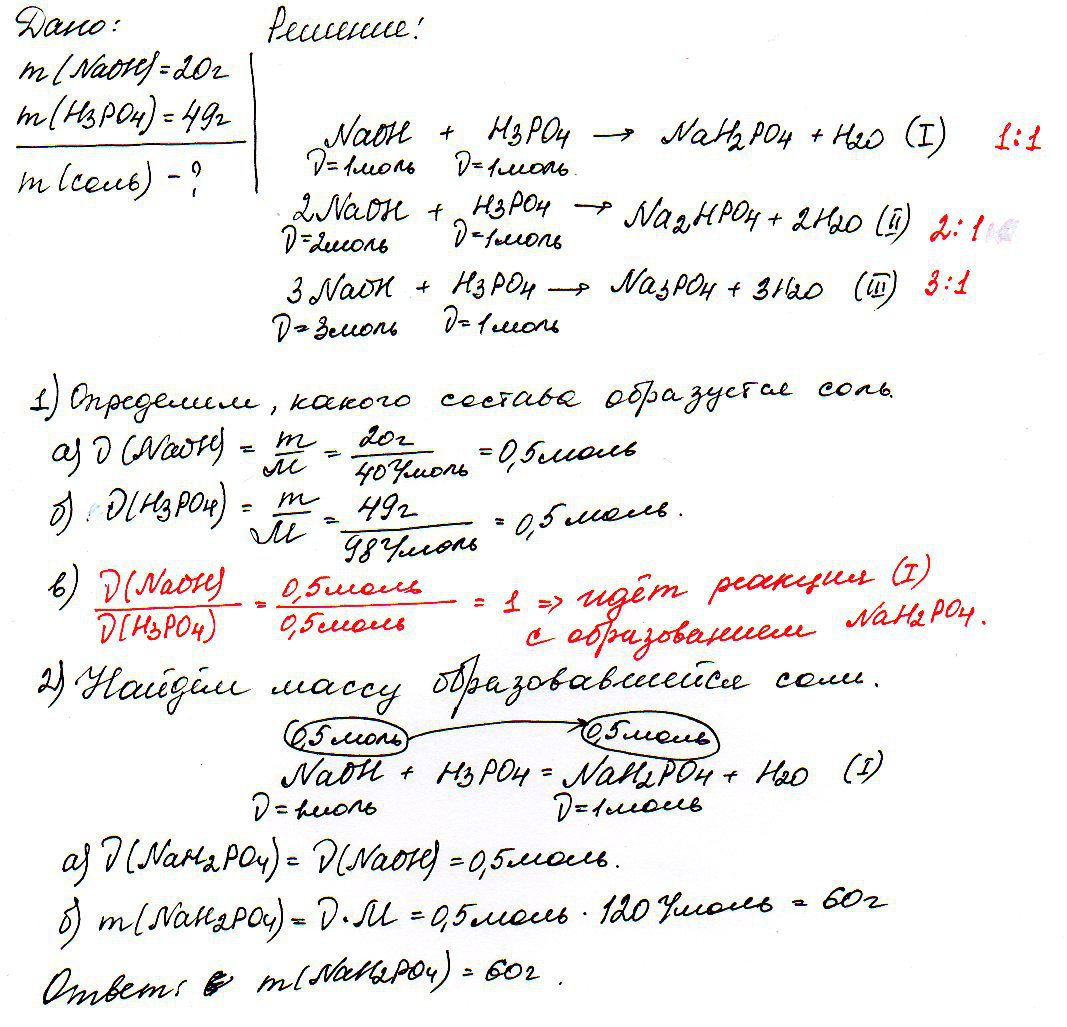 Дано:
m(NaOH)=20г
m(H3PO4)=49г
m(соль)-?
Решение:
NaOH + H3PO4 → NaH2PO4 + H2O (I) 1:1
ν=1моль ν=1моль.
2NaOH + H3PO4 → Na2HPO4 + 2H2O (II) 2:1
ν=2моль ν=1моль
3NaOH + H3PO4 → Na3PO4 + 3H2O (III) 3:1
ν=3моль ν=1моль
1) Определим, какого состава образуется соль.
а) ν(NaOH) = m/M = 20г/40г/моль = 0,5моль
б) ν(H3PO4) = m/M = 49г/98г/моль = 0,5моль.
в) ν(NaOH)/ν(H3PO4) = 0,5моль/0,5моль = 1 => идёт реакция (I)
с образованием NaH2PO4.
2) Найдём массу образовавшейся соли.
0,5моль 0,5моль
NaOH + H3PO4 = NaH2PO4 + H2O (I)
ν=1моль ν=1моль
а) ν(NaH2PO4) = ν(NaOH) = 0,5моль.
б) m(NaH2PO4) = ν·M = 0,5моль · 120г/моль = 60г
Ответ: m(NaH2PO4) = 60г.